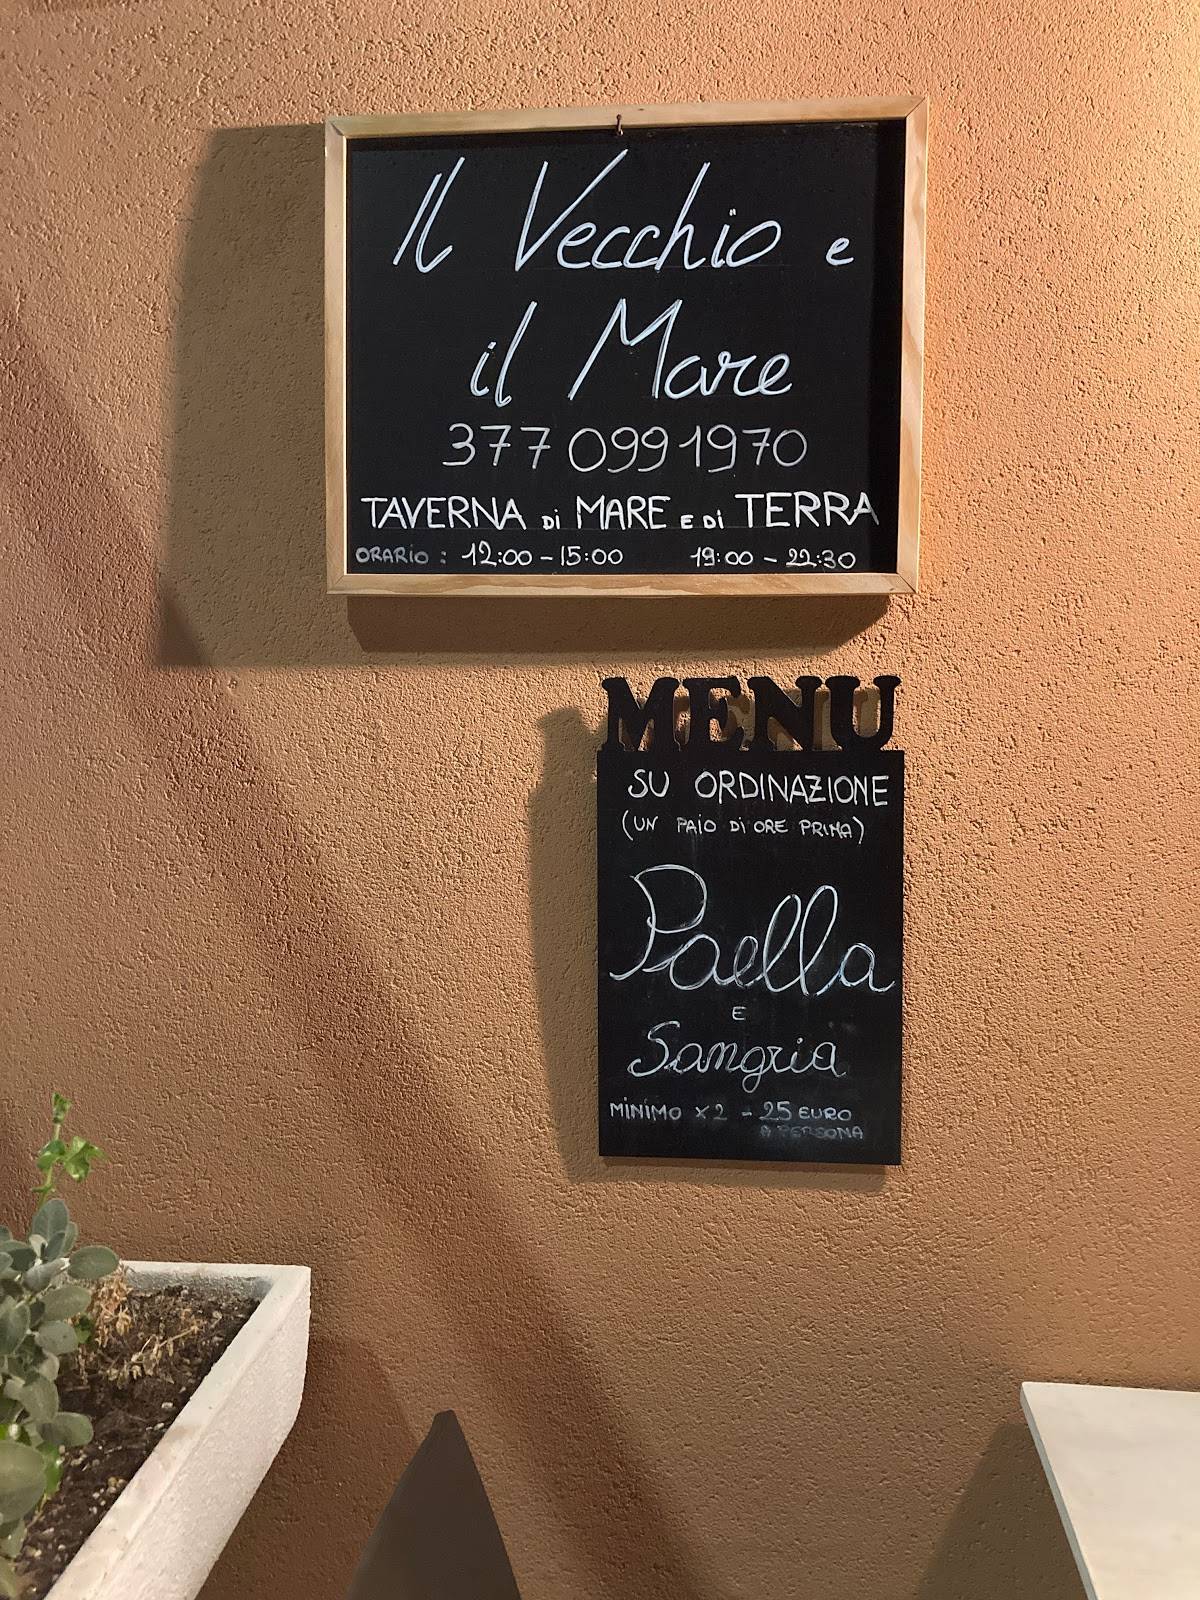 Il Vecchio e
il Mare
377 0991970
TAVERNA Di MARE E Di TERRA
ORARiO : 12:00 - 15:00 19:00 - 22:30
MENU
SU ORDINAZIONE
(UN PAiO Di ORE PRIMA)
Paella
E
Sangria
MiNiMO x 2 - 25 EURO
A PERSONA